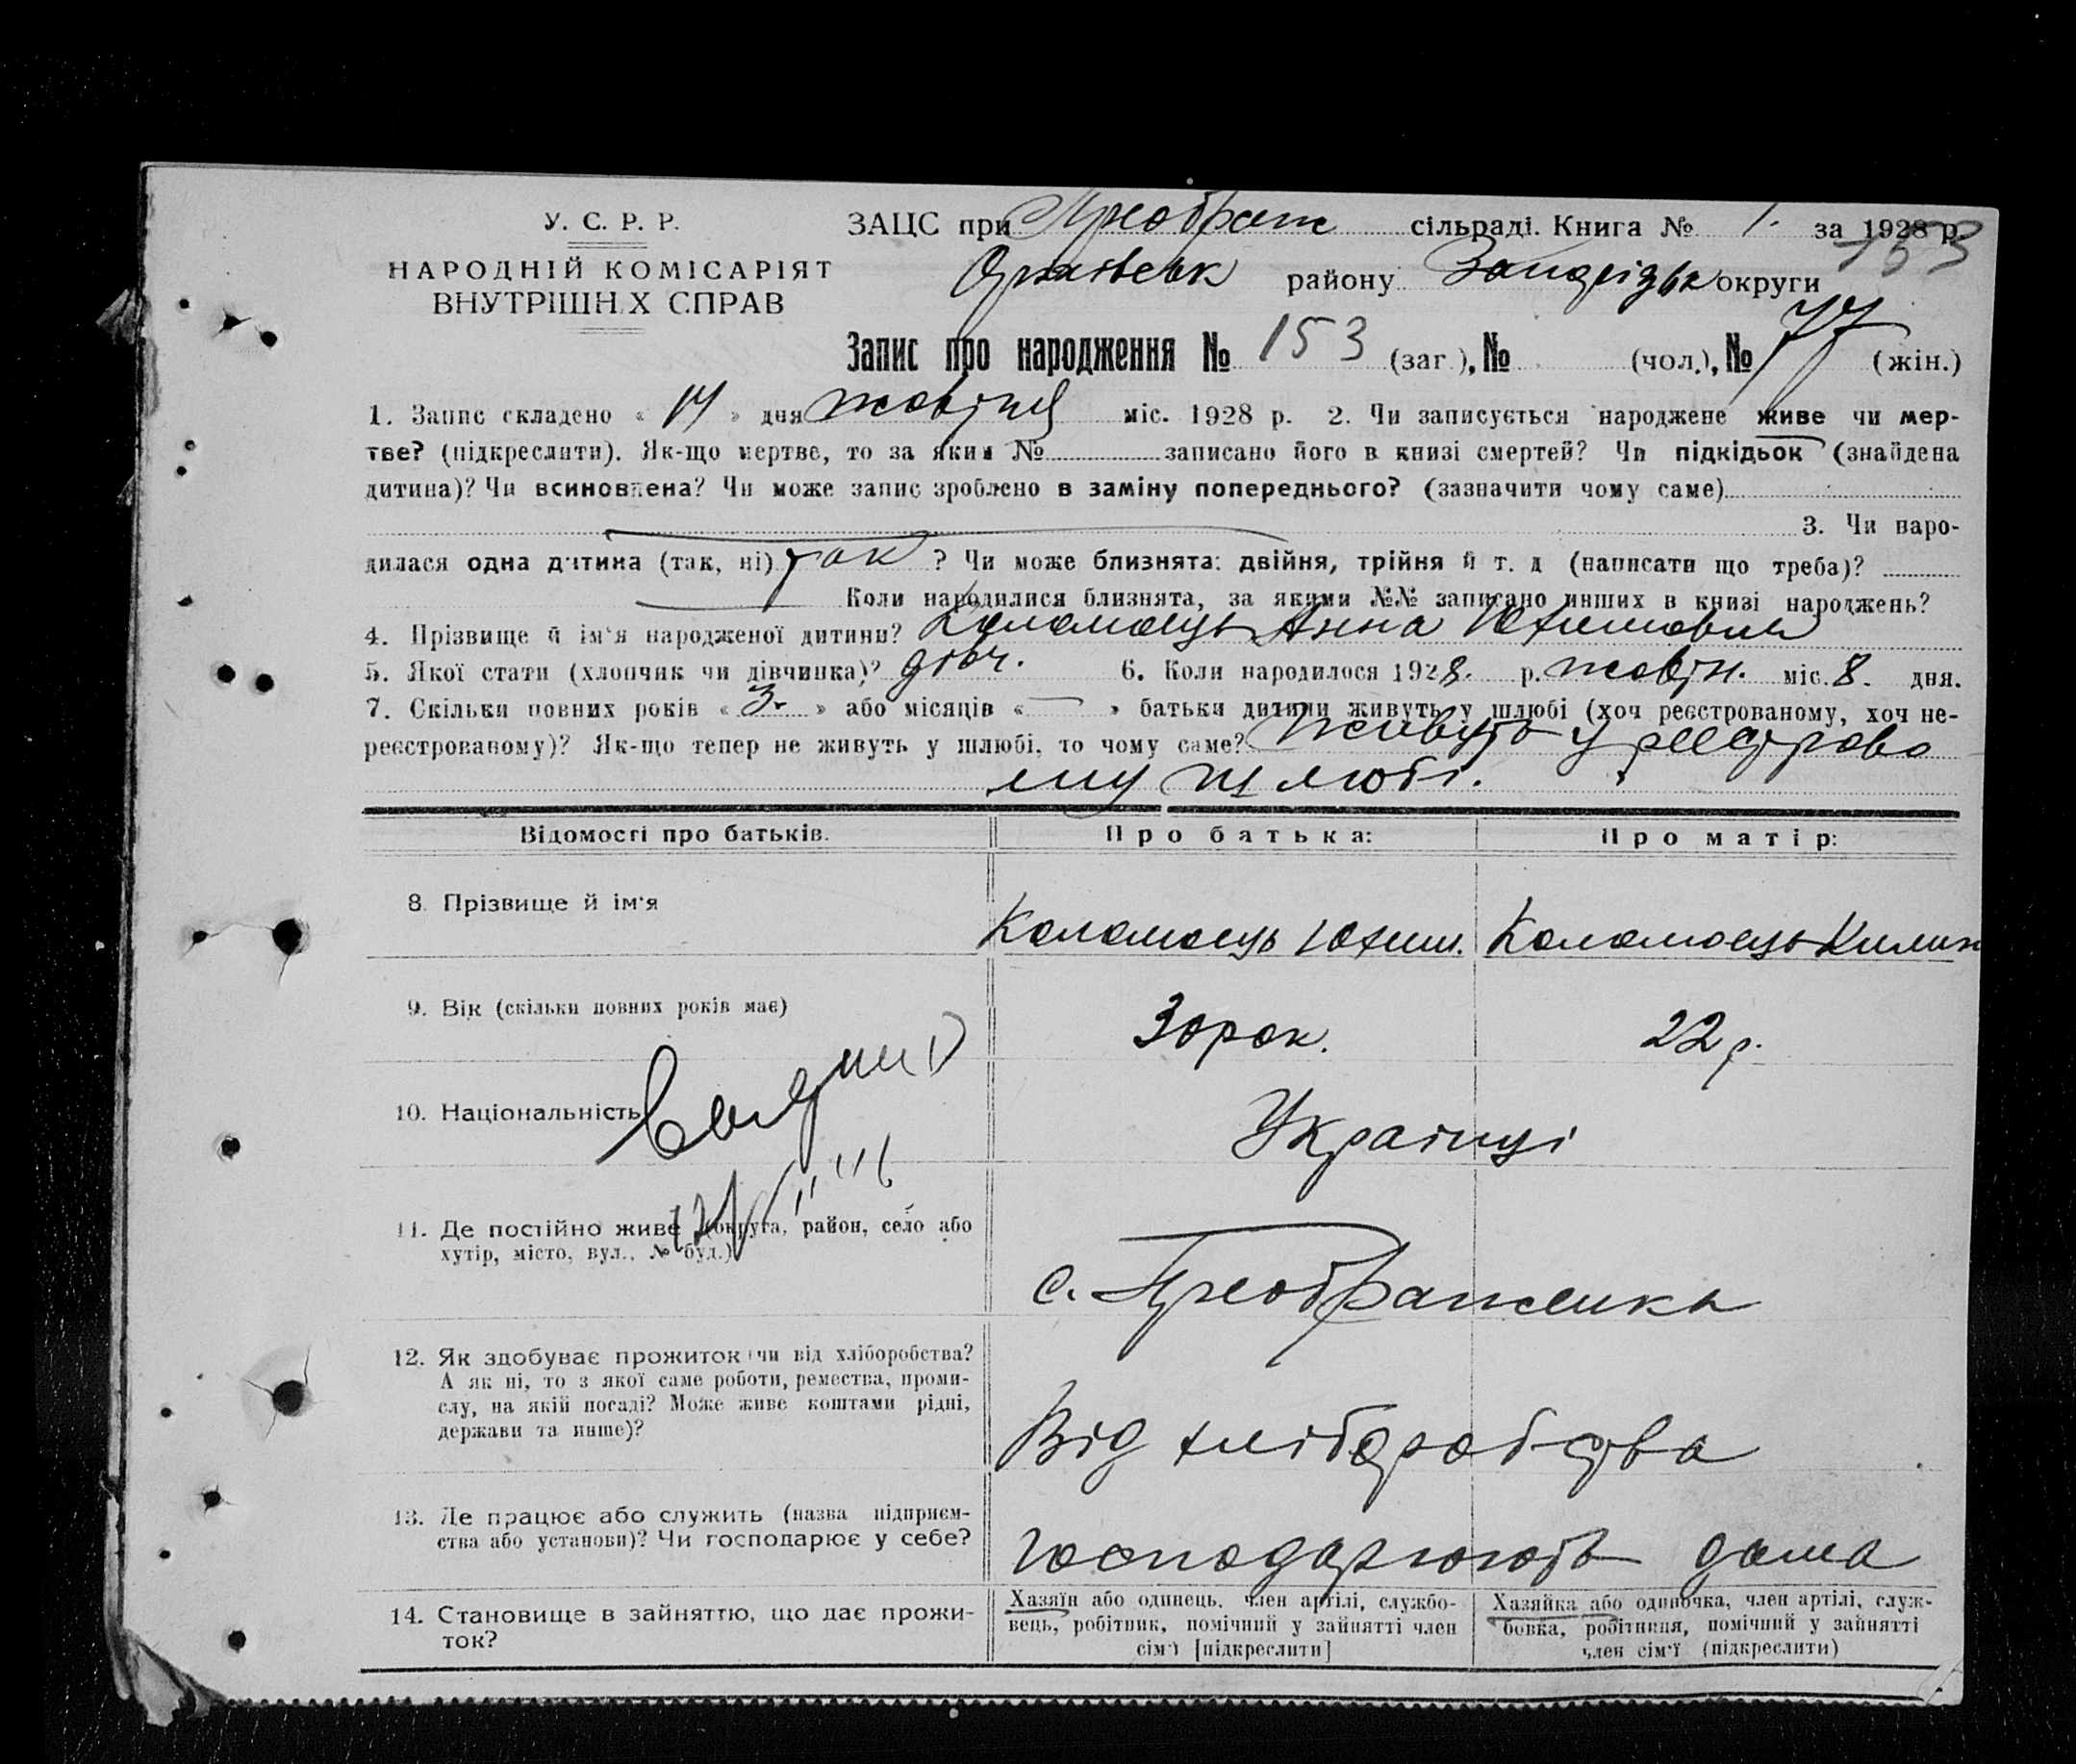 У. С. Р. Р.
НАРОДНІЙ КОМІСАРІЯТ
ВНУТРІШНІХ СПРАВ
ЗАЦС при Преображ сільраді. Книга № 1. за 1928 р.
153
Оріхівськ району Запорізьк округи
Запис про народження № 153 (заг.), № (чол.), № 77 (жін.)
1. Запис складено « 14 » дня жовтня міс. 1928 р. 2. Чи записується народжене живе чи мер-
тве? (підкреслити). Як-що мертве, то за яким № записано його в книзі смертей? Чи підкідьок (знайдена
дитина)? Чи всиновлена? Чи може запис зроблено в заміну попереднього? (зазначити чому саме)
3. Чи наро-
дилася одна дитина (так, ні) так ? Чи може близнята: двійня, трійня й т. д (написати що треба)?
Коли народилися близнята, за якими №№ записано инших в книзі народжень?
4. Прізвище й ім'я народженої дитини? Коломоець Анна Юхимовна
5. Якої стати (хлопчик чи дівчинка)? дівч. 6. Коли народилося 1928. р. жовтн. міс. 8. дня.
7. Скільки повних років « 3. » або місяців « — » батьки дитини живуть у шлюбі (хоч реєстрованому, хоч не-
реєстрованому)? Як-що тепер не живуть у шлюбі, то чому саме? Живуть у реєстрова
ному шлюбі.
Відомості про батьків. Про батька: Про матір:
8. Прізвище й ім'я Коломоець Юхим. Коломоець Килин
9. Вік (скільки повних років має) 30 рок. 22 р.
10. Національність Українці
11. Де постійно живе (округа, район, село або
хутір, місто, вул., № буд.)
с. Преображенка
12. Як здобуває прожиток (чи від хліборобства?
А як ні, то з якої саме роботи, ремества, проми-
слу, на якій посаді? Може живе коштами рідні,
держави та инше)?
Від хліборобства
13. Де працює або служить (назва підприєм-
ства або установи)? Чи господарює у себе?
господарюють дома
14. Становище в зайняттю, що дає прожи-
ток?
Хазяїн або одинець, член артілі, службо-
вець, робітник, помічний у зайнятті член
сім'ї [підкреслити]
Хазяйка або одиночка, член артілі, служ-
бовка, робітниця, помічний у зайнятті
член сім'ї (підкреслити)